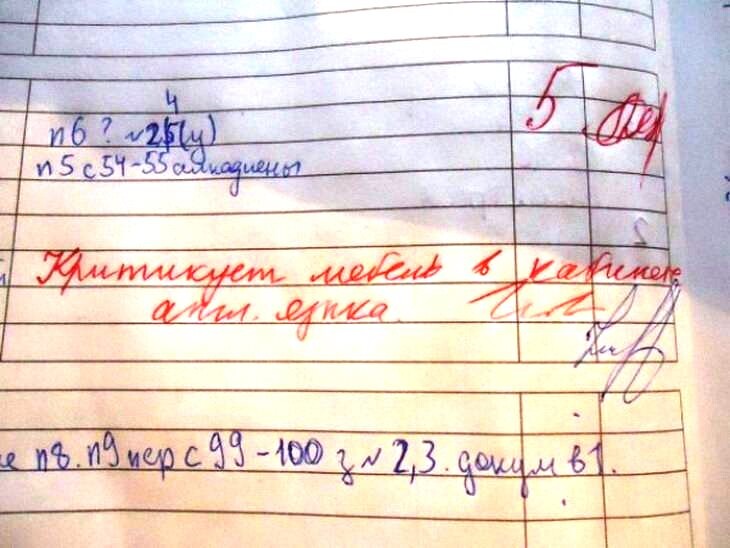 4
п6 ? №25(у)
5
п5 с 54-55 алкадиены
Критикует мебель в кабинете
англ. языка.
п8. п9 пер с 99-100 з №2,3. докум в 1.